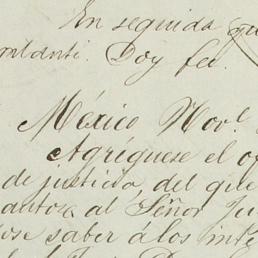 En seguida
Doy fee.
México Nov.e
Agréguese el
de justicia, del que
autos al Señor
saber á los